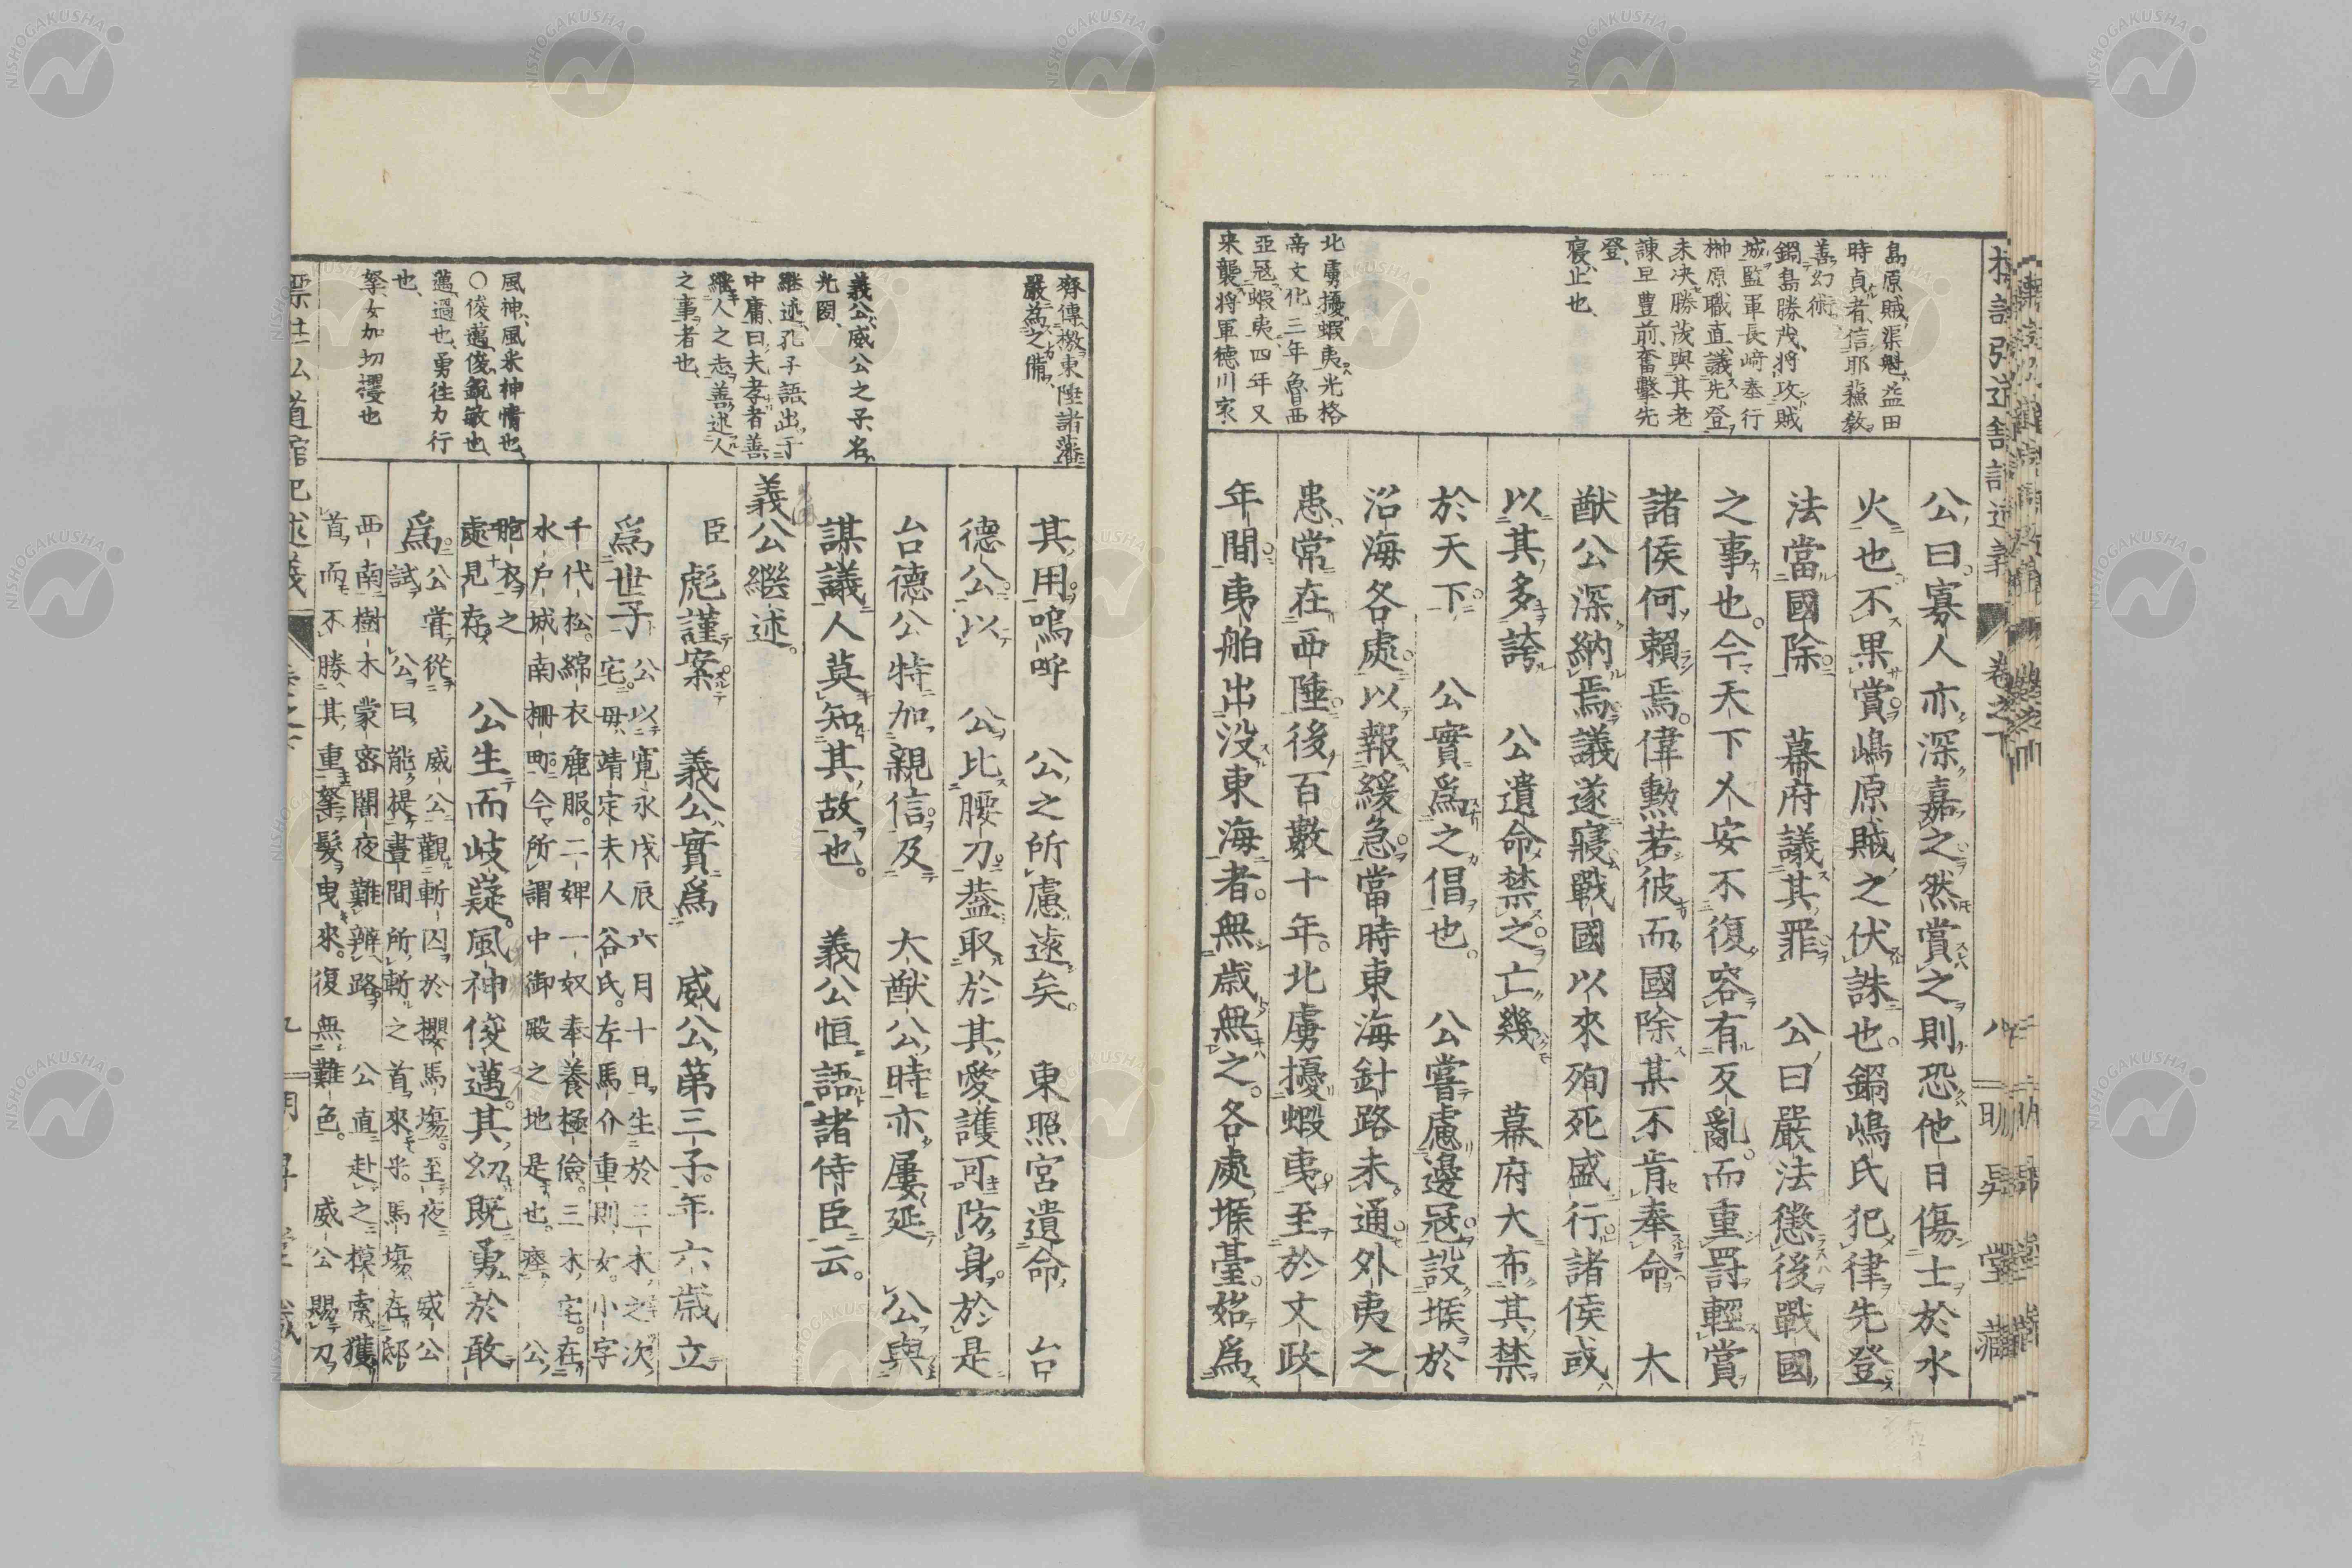 島原賊渠魁益田
時貞者信耶蘓敎
善幻術
鍋島勝茂將攻賊
城監軍長﨑奉行
榊原職直議先登
未决勝茂與其老
諫早豊前奮擊先
登
寝止也
北虜擾蝦夷光格
帝文化三年魯西
亞冦蝦夷四年又
来襲将軍徳川家
公曰寡人亦深嘉之然賞之則恐他日傷士於水
火也不果賞嶋原賊之伏誅也鍋嶋氏犯律先登
法當國除 幕府議其罪 公曰嚴法懲後戰國
之事也今天下乂安不復容有反亂而重罸輕賞
諸侯何賴焉偉勲若彼而國除某不肯奉命 大
猷公深納焉議遂寢戰國以來殉死盛行諸侯或
以其多誇 公遺命禁之亡幾 幕府大布其禁
於天下 公實爲之倡也 公嘗慮邊冦設堠於
沿海各處以報緩急當時東海針路未通外夷之
患常在西陲後百數十年北虜擾蝦夷至於文政
年間夷舶出没東海者無歳無之各處堠臺始爲
齊傳檄東陲諸藩
嚴為之備
義公威公之子名
光圀
継述孔子語出于
中庸曰夫孝者善
繼人之志善述人
之事者也
風神風采神情也
○俊邁俊銳敏也
邁過也勇徃力行
也
拏女加切攖也
其用嗚呼 公之所慮遠矣 東照宮遺命 台
德公以 公比腰刀葢取於其愛護可防身於是
台德公特加親信及 大猷公時亦屢延 公與
謀議人莫知其故也 義公恒語諸侍臣云
義公繼述
臣彪謹案 義公實爲 威公第三子年六歳立
爲世子 公以寛永戊辰六月十日生於三木之次
宅母靖定夫人谷氏左馬介重則女小字
千代松綿衣麁服二婢一奴奉養極儉三木宅在
水戸城南柵町今所謂中御殿之地是也瘞 公
胞衣之
處見存 公生而岐嶷風神俊邁其幼既勇於敢
爲 公嘗從 威公觀斬囚於櫻馬塲至夜 威公
試 公曰能提晝間所斬之首來乎馬塲在邸
西南樹木蒙密闇夜難辨路 公直赴之摸索獲
首而不勝其重拏髮曳來復無難色 威公賜刀